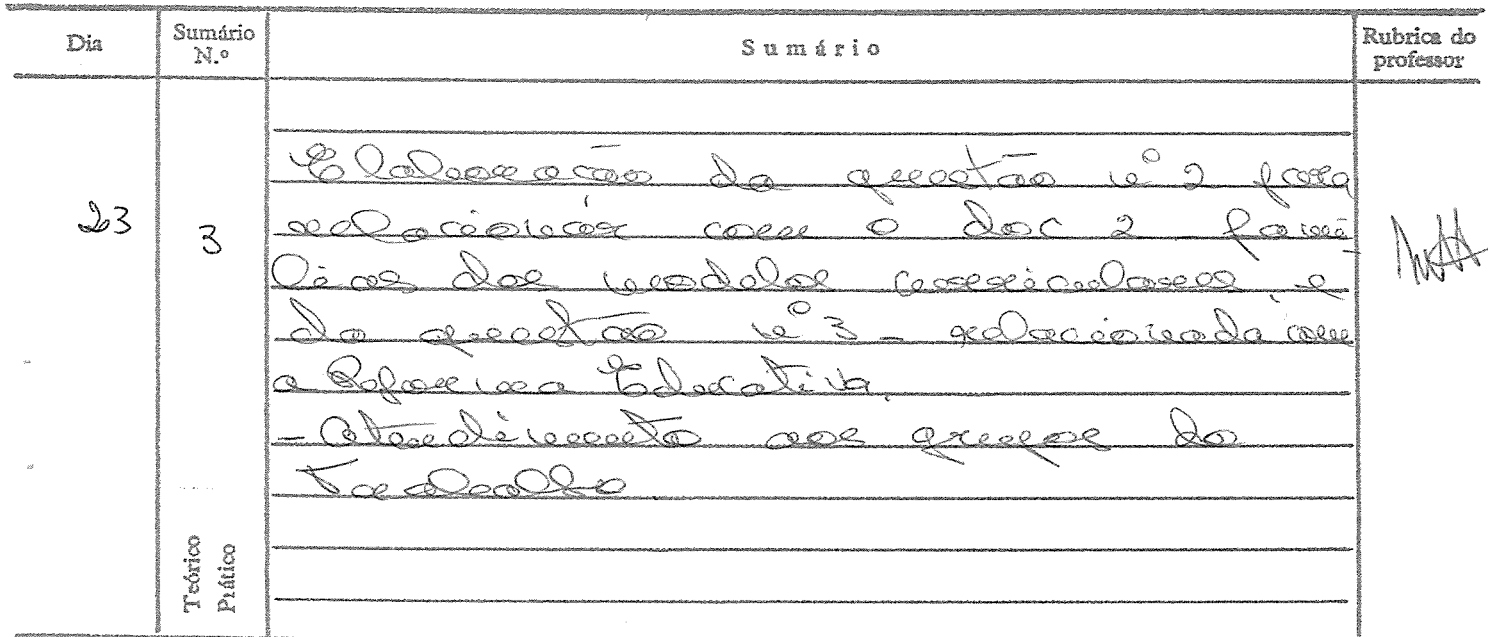 Dia
Sumário N.º
Sumário
Rubrica do professor
23
3
Elaboração da questão nº 2 para
relacionar com o doc 2 famí
lias dos modelos curriculares, e
da questão nº 3 - relacionada com
a Reforma Educativa.
- Atendimento aos grupos de
Trabalho
Teórico
Prático